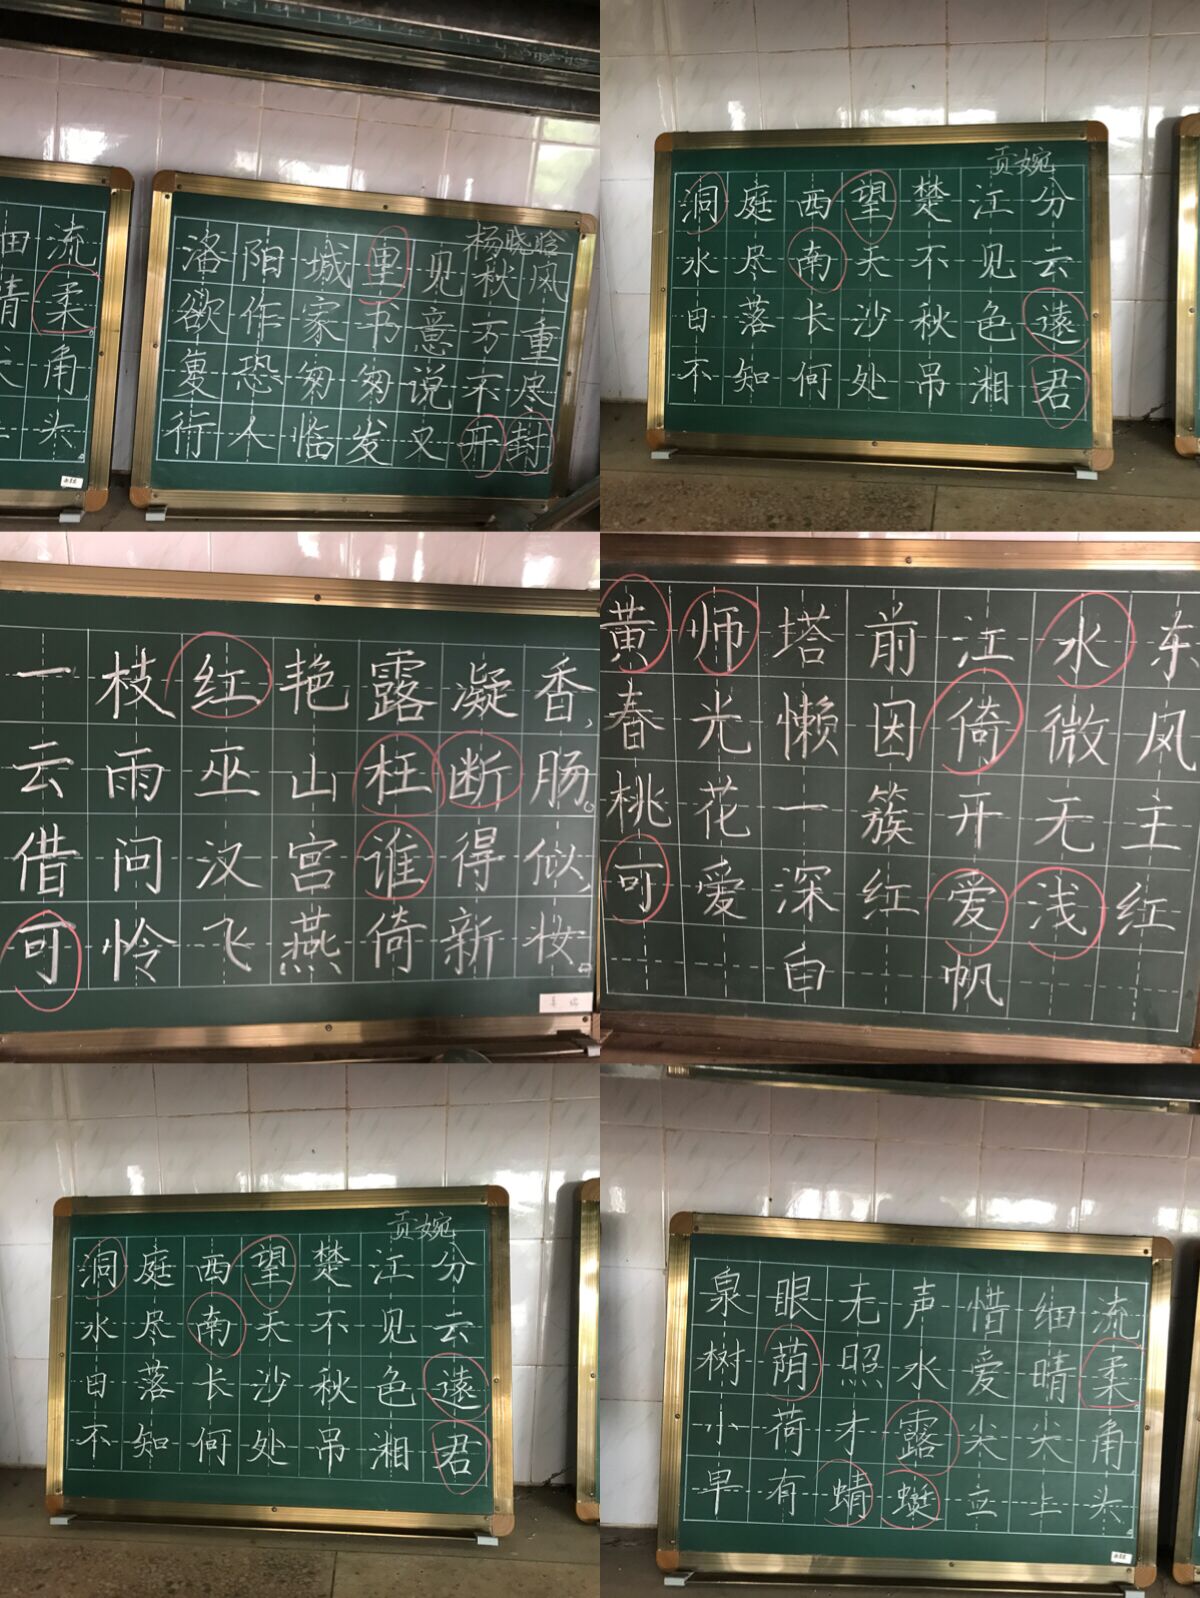 细流
晴柔。
角
头
杨晓晗
洛阳城里见秋风
欲作家书意万重
复恐匆匆说不尽
行人临发又开封
贡婉
洞庭西望楚江分
水尽南天不见云
日落长沙秋色遠
不知何处吊湘君
一枝红艳露凝香,
云雨巫山枉断肠。
借问汉宫谁得似,
可怜飞燕倚新妆。
黄师塔前江水东
春光懒困倚微风
桃花一簇开无主
可爱深红爱浅红
自 帆
贡婉
洞庭西望楚江分
水尽南天不见云
日落长沙秋色遠
不知何处吊湘君
泉眼无声惜细流
树荫照水爱晴柔。
小荷才露尖尖角
早有蜻蜓立上头。